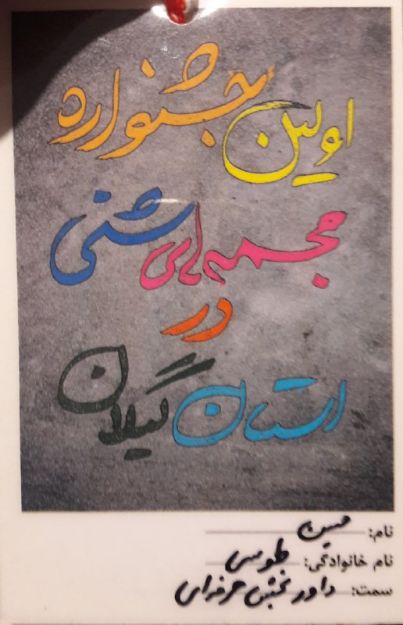 اولین جشنواره
مجسمه های شنی
در
استان گیلان
نام: حسین
نام خانوادگی: طوسی
سمت: داور بخش حرفه ای